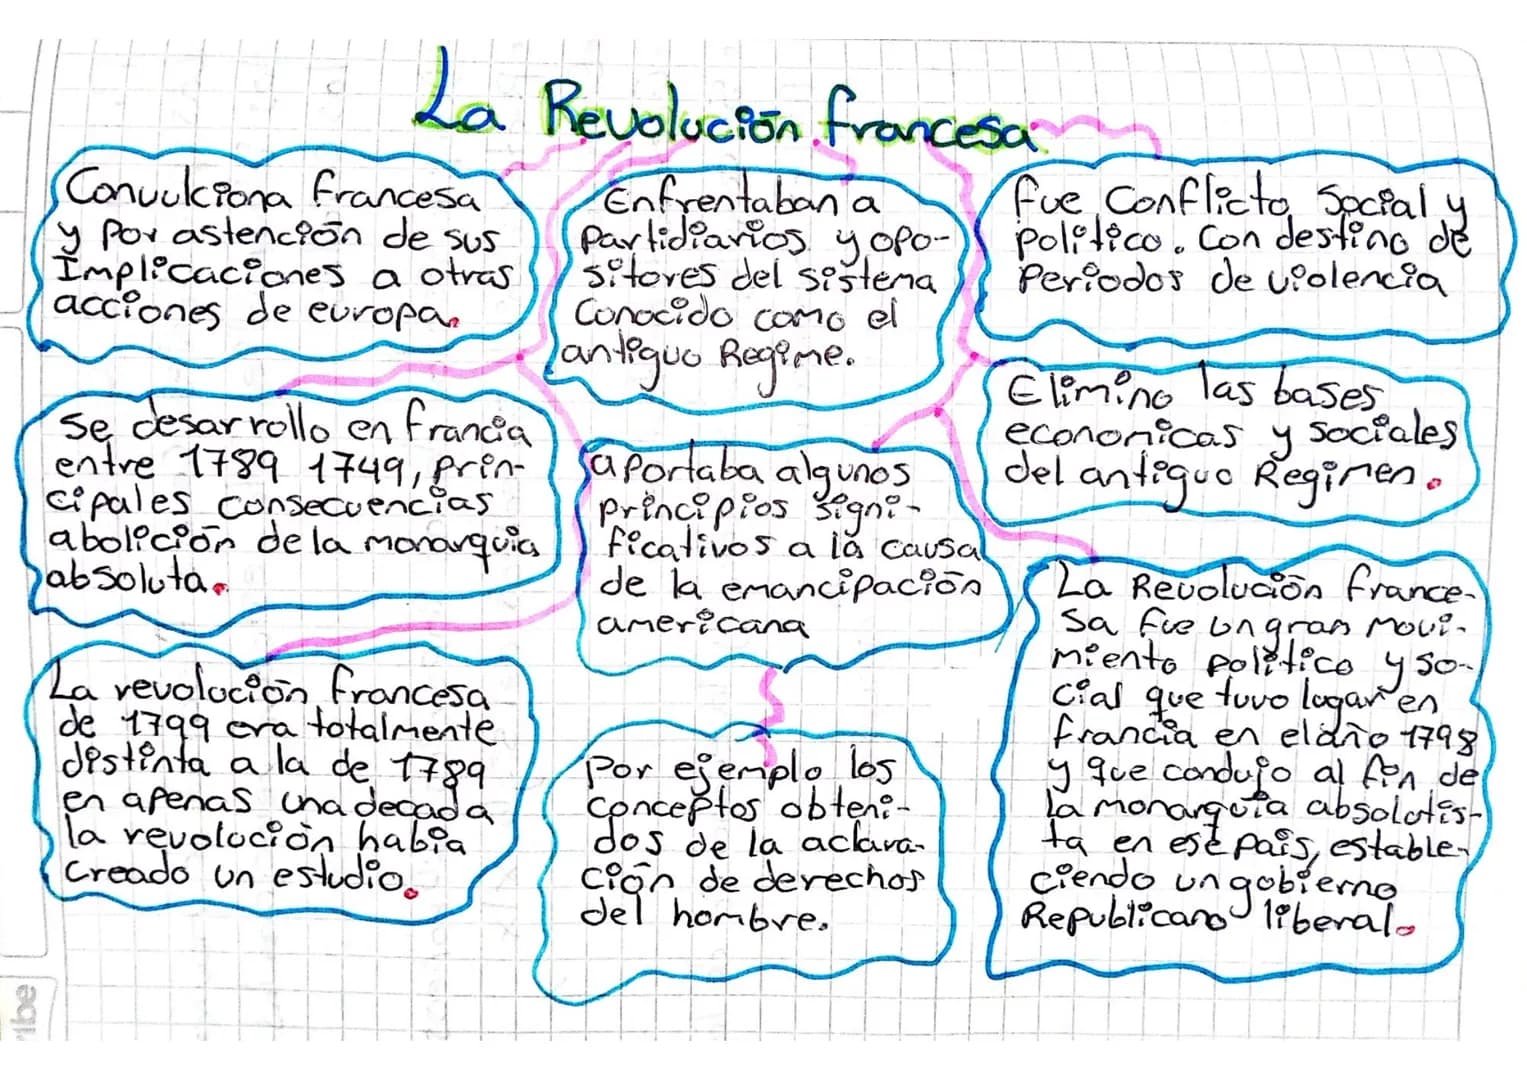 La Revolución francesa
Convulciona francesa
y por astención de sus
Implicaciones a otras
acciones de europa.
Enfrentaban a
Partidiarios y opo-
sitores del sistema
Conocido como el
antiguo Regime.
fue Conflicto Social y
político. Con destino de
Periodos de violencia
Se desarrollo en francia
entre 1789 1749, prin-
cipales consecuencias
abolición de la monarquia
absoluta.
aportaba algunos
principios signi-
ficativos a la causa
de la emancipación
americana
Elimino las bases
economicas y sociales
del antiguo Regimen.
La revolución francesa
de 1799 era totalmente
distinta a la de 1789
en apenas una decada
la revolución había
Creado un estudio.
Por ejemplo los
conceptos obteni-
dos de la aclara-
ción de derechos
del hombre.
La Revolución france-
sa fue un gran movi-
miento político y so-
cial que tuvo lugar en
francia en el año 1798
y que condujo al fin de
la monarquía absolutis-
ta en ese país, estable-
ciendo un gobierno
Republicano liberal.
ribe